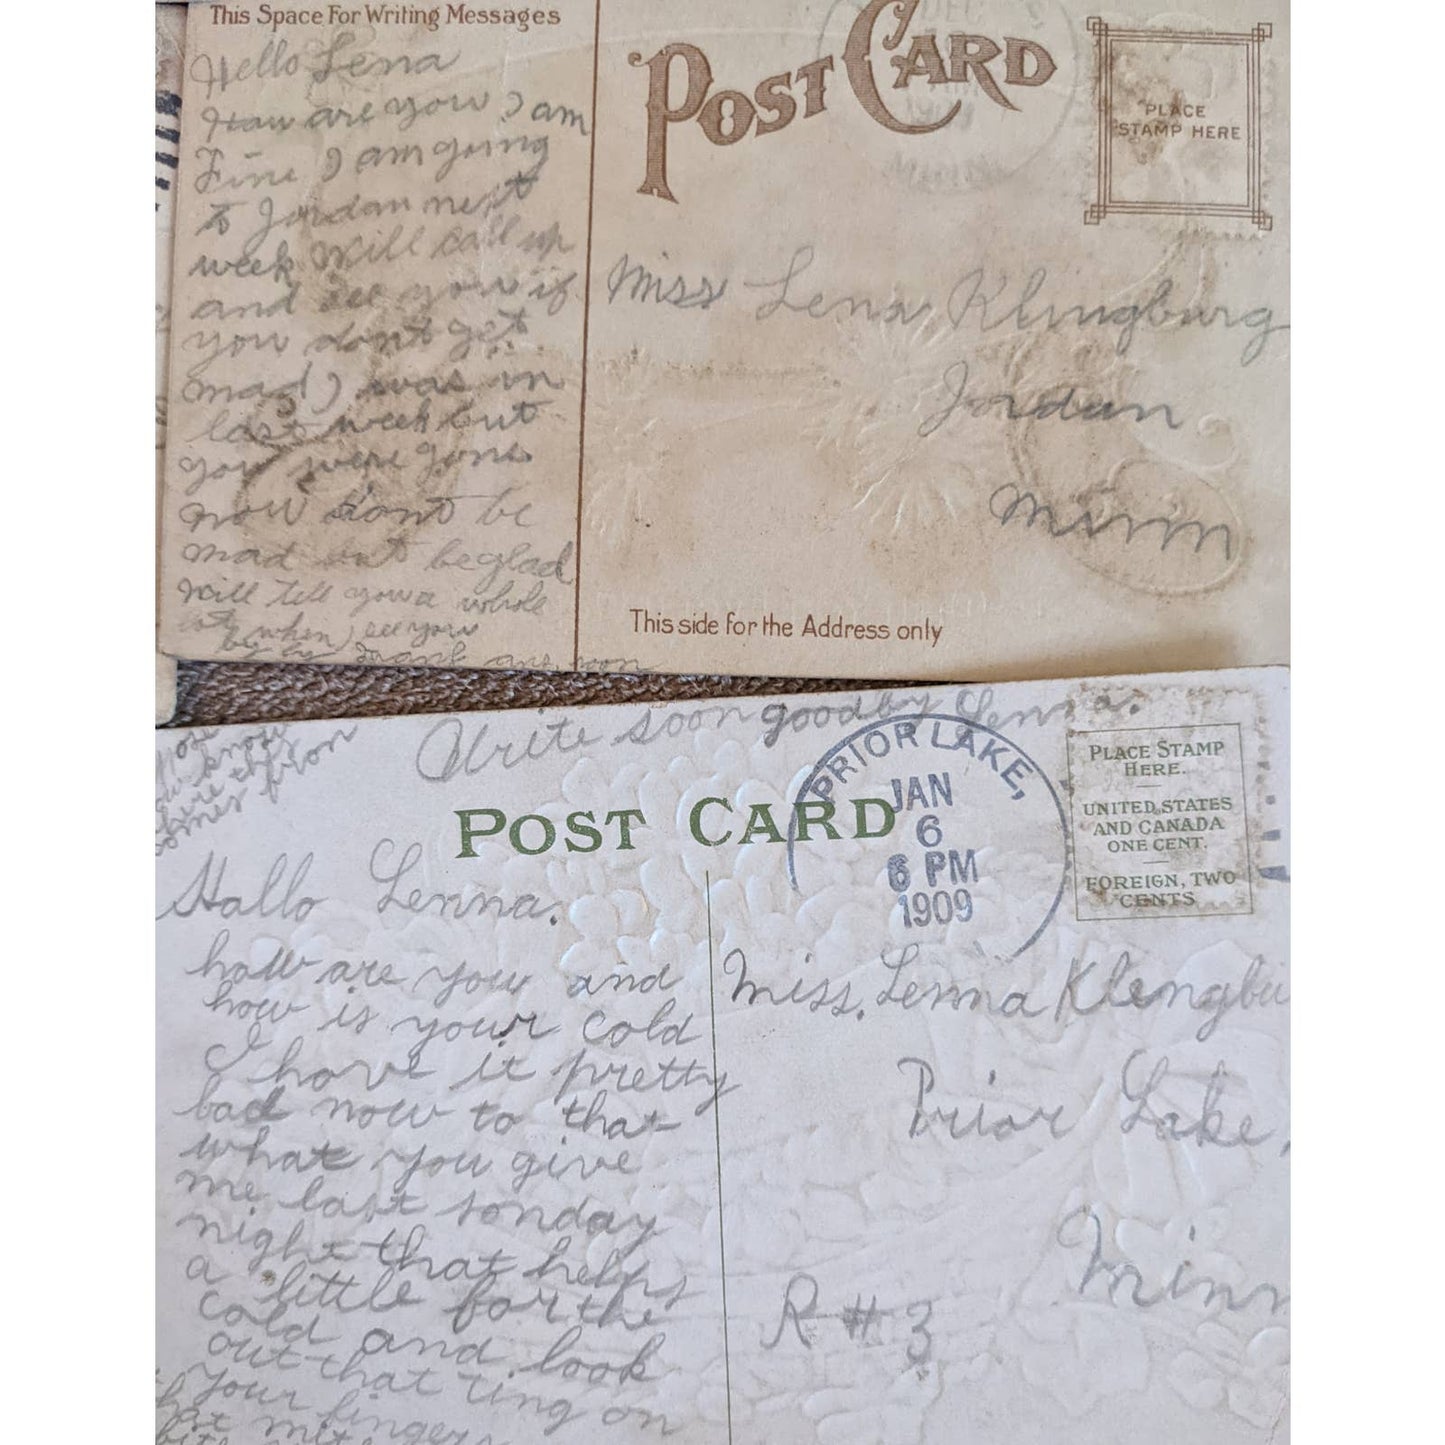 This Space For Writing Messages
Hello Lena
How are you I am
Fine I am going
to Jordan next
week Will call up
and see you if
you dont get
mad I was in
last week but
you were gone
now dont be
mad but be glad
Will tell you a whole
lots when I see you
by by Frank ans soon
POST CARD
PLACE
STAMP HERE
Miss Lena Klingburg
Jordan
Minn
This side for the Address only
Write soon goodby Lenna.
you know
where this
comes from
POST CARD
PRIOR LAKE,
JAN
6
6 PM
1909
PLACE STAMP
HERE.
UNITED STATES
AND CANADA
ONE CENT.
FOREIGN, TWO
CENTS
Hallo Lenna.
how are you and
how is your cold
I hove it pretty
bad now to that
what you give
me last sonday
night that helps
a little for the
cold and look
out that ring on
your fingers
that
Miss. Lenna Klengbu
Prior Lake,
Minn
R # 3